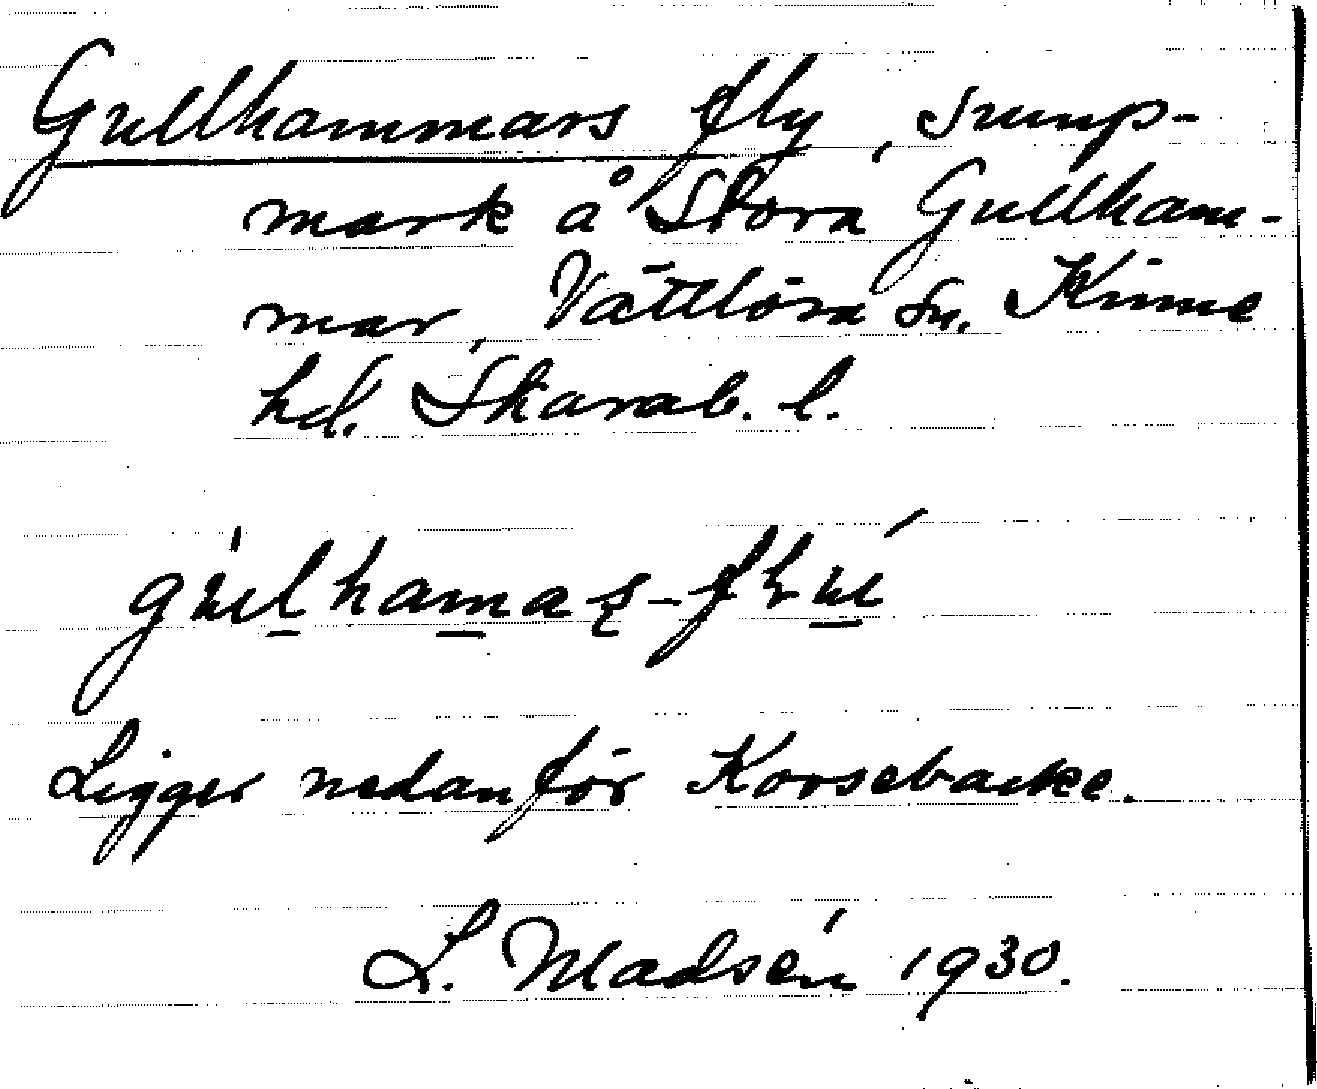 Gullhammars fly, sump-
mark å Stora Gullham-
mar, Vättlösa sn. Kinne
hd. Skarab. l.
Ligger nedanför Korsebacke.
L. Madsén 1930.